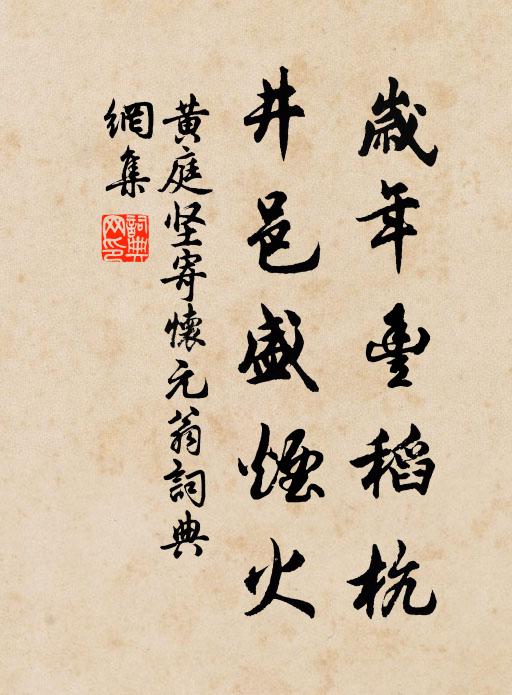 歲年豊稻杭
井邑盛煙火
黄庭坚寄懷元翁詞典
網集
詞典
网印